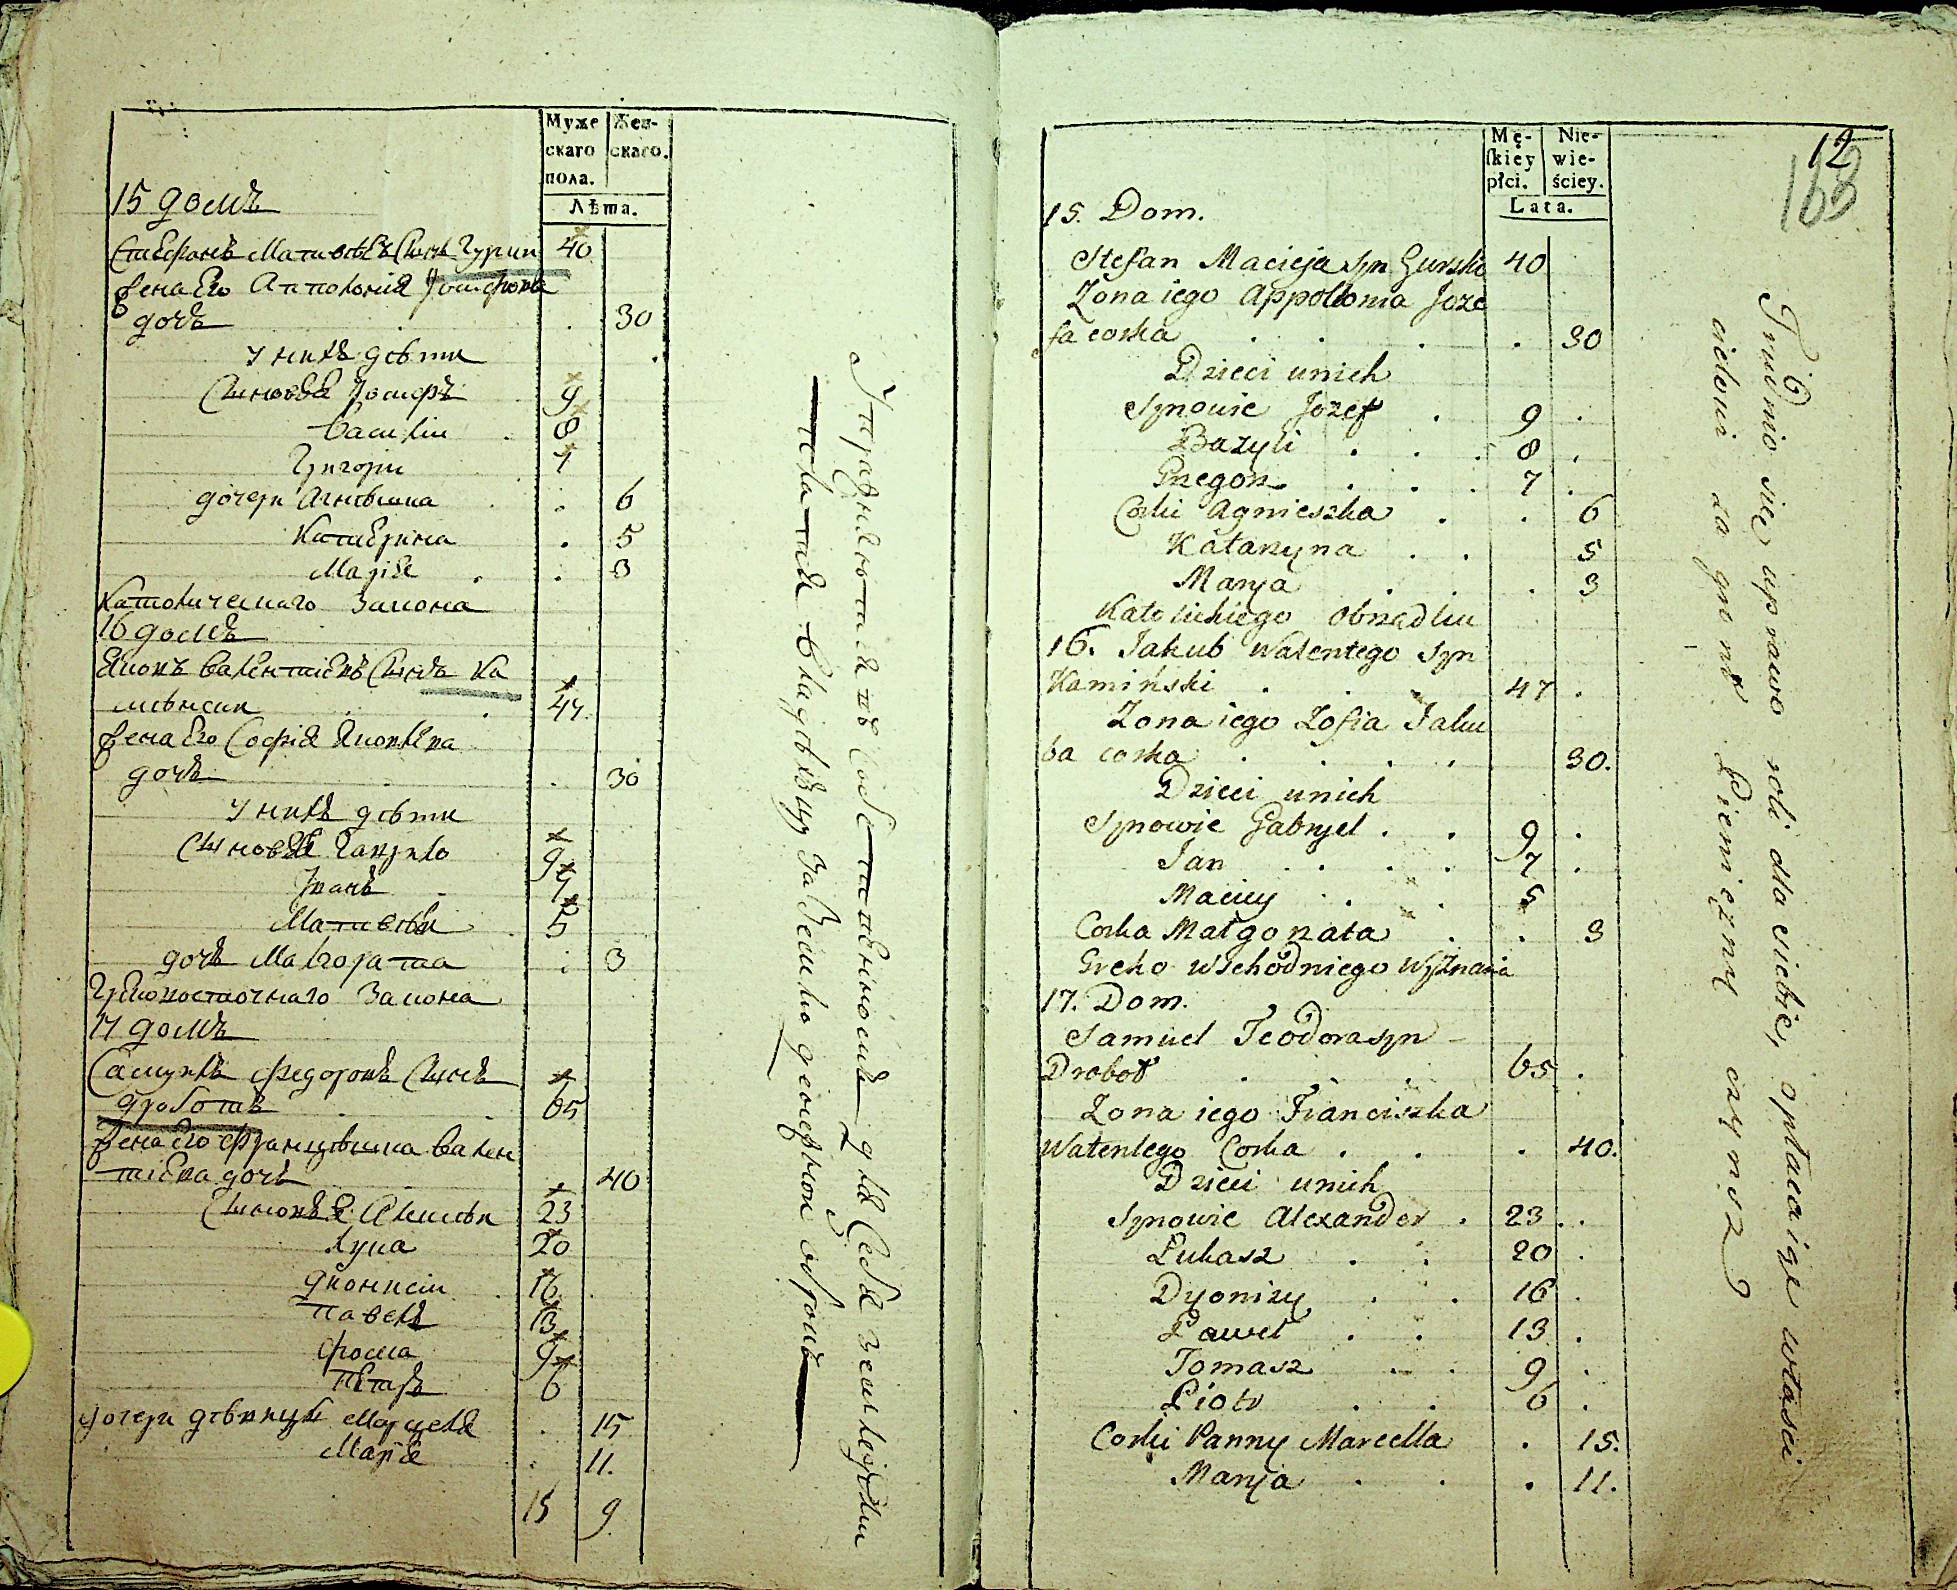 Муже
скаго
пола.
Жен-
скаго.
Лѣта.
15 домъ
Стефанъ Матвѣевъ Сынъ Гурски 40
жена Его Апполонія Іосифова
дочь 30
у нихъ дѣти
Сыновья Іосифъ 9
Василій 8
Григорій 7
дочери Агнѣшка 6
Катерина 5
Марія 3
Католическаго Закона
16 домъ
Яковъ Валентіевъ Сынъ Ка
мѣнски 47
жена Его Софія Яковлева
дочь 30
у нихъ дѣти
Сыновья Гаврило 9
Іванъ 7
Матвѣй 5
дочь Малгората 3
Грековосточнаго Закона
17 домъ
Самуилъ Федоровъ Сынъ
Дроботъ 65
жена Его Францѣшка Вален
тіева дочь 40
Сыновья Алексѣй 23
Лука 20
Діонисій 16
Павелъ 13
Фома 9
Петръ 6
дочери дѣвицы Марцеля 15
Марія 11.
15 9
Упражняются въ Собственности для Себя земледѣлія
плотя Владѣльцу за Землю денежной оброкъ
12
168
Mę-
skiey
płci.
Nie-
wie-
ściey.
Lata.
15. Dom.
Stefan Macieja syn Gurski 40
Zona iego Appollonia Joze
fa corka 30
Dzieci unich
Synowie Jozef 9
Bazyli 8
Grzegorz 7
Corki Agnieszka 6
Katarzyna 5
Marya 3
Katolickiego obrządku
16. Jakub Walentego Syn
Kamiński 47
Zona iego Zofia Jaku
ba corka 30.
Dzieci unich
Synowie Gabryel 9
Jan 7
Maciey 5
Corka Małgorzata 3
Greko wschodniego wyznania
17. Dom.
Samuel Teodora syn
Drobot 65
Zona iego Franciszka
Walentego Corka 40.
Dzieci unich
Synowie Alexander 23
Łukasz 20
Dyonizy 16
Paweł 13
Tomasz 9
Piotr 6
Corki Panny Marcella 15.
Marya 11.
Trudnio się uprawo roli dla siebie, opłacaiąc właści
cielowi za grunt Pieniężny czynsz